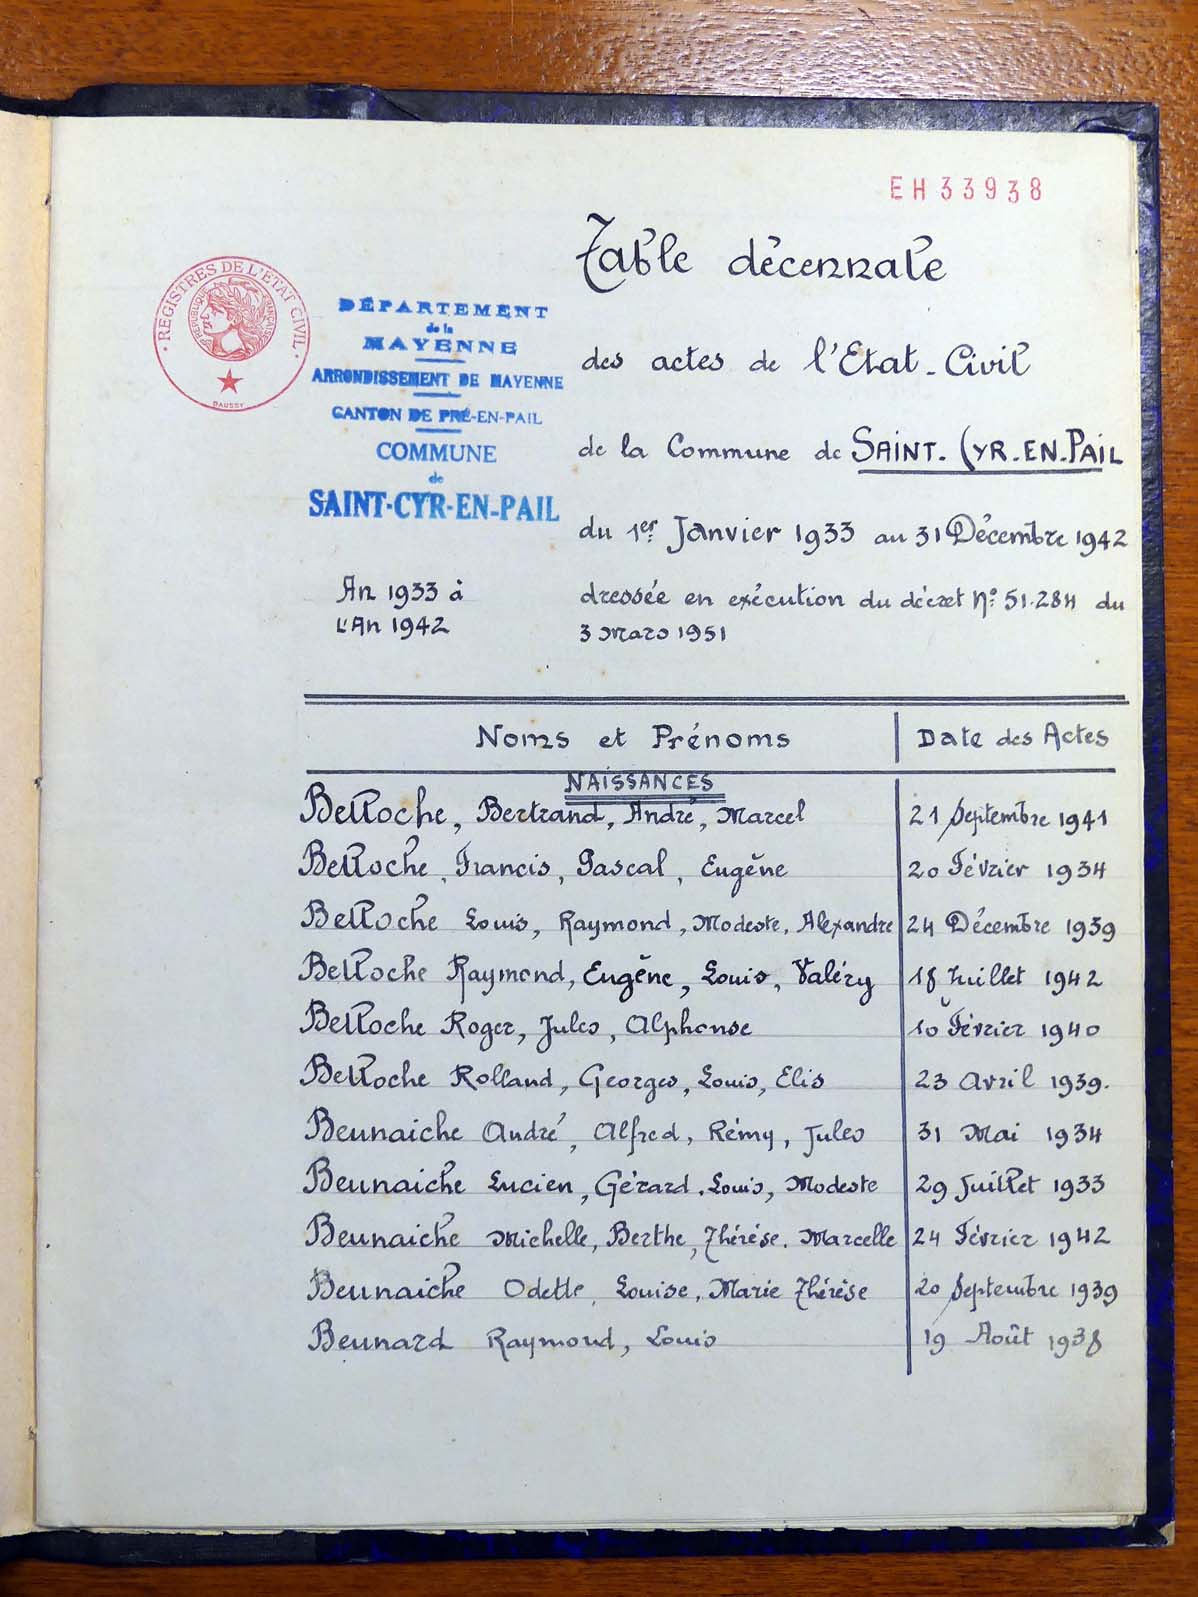 EH33938
Table décennale
REGISTRES DE L'ETAT CIVIL
REPUBLIQUE FRANÇAISE
DAUSSY
DÉPARTEMENT
de la
MAYENNE
ARRONDISSEMENT DE MAYENNE
CANTON DE PRÉ-EN-PAIL
COMMUNE
de
SAINT-CYR-EN-PAIL
des actes de l'Etat-Civil
de la Commune de SAINT-CYR-EN-PAIL
du 1er Janvier 1933 au 31 Décembre 1942
An 1933 à
L'An 1942
dressée en exécution du décret N° 51-284 du
3 Mars 1951
Noms et Prénoms Date des Actes
NAISSANCES
Belloche, Bertrand, André, Marcel 21 Septembre 1941
Belloche, Francis, Pascal, Eugène 20 Février 1934
Belloche Louis, Raymond, Modeste, Alexandre 24 Décembre 1939
Belloche Raymond, Eugène, Louis, Valéry 18 Juillet 1942
Belloche Roger, Jules, Alphonse 10 Février 1940
Belloche Rolland, Georges, Louis, Elis 23 Avril 1939.
Beunaiche André, Alfred, Rémy, Jules 31 Mai 1934
Beunaiche Lucien, Gérard, Louis, Modeste 29 Juillet 1933
Beunaiche Michelle, Berthe, Thérèse, Marcelle 24 Février 1942
Beunaiche Odette, Louise, Marie Thérèse 20 Septembre 1939
Beunard Raymond, Louis 19 Août 1938